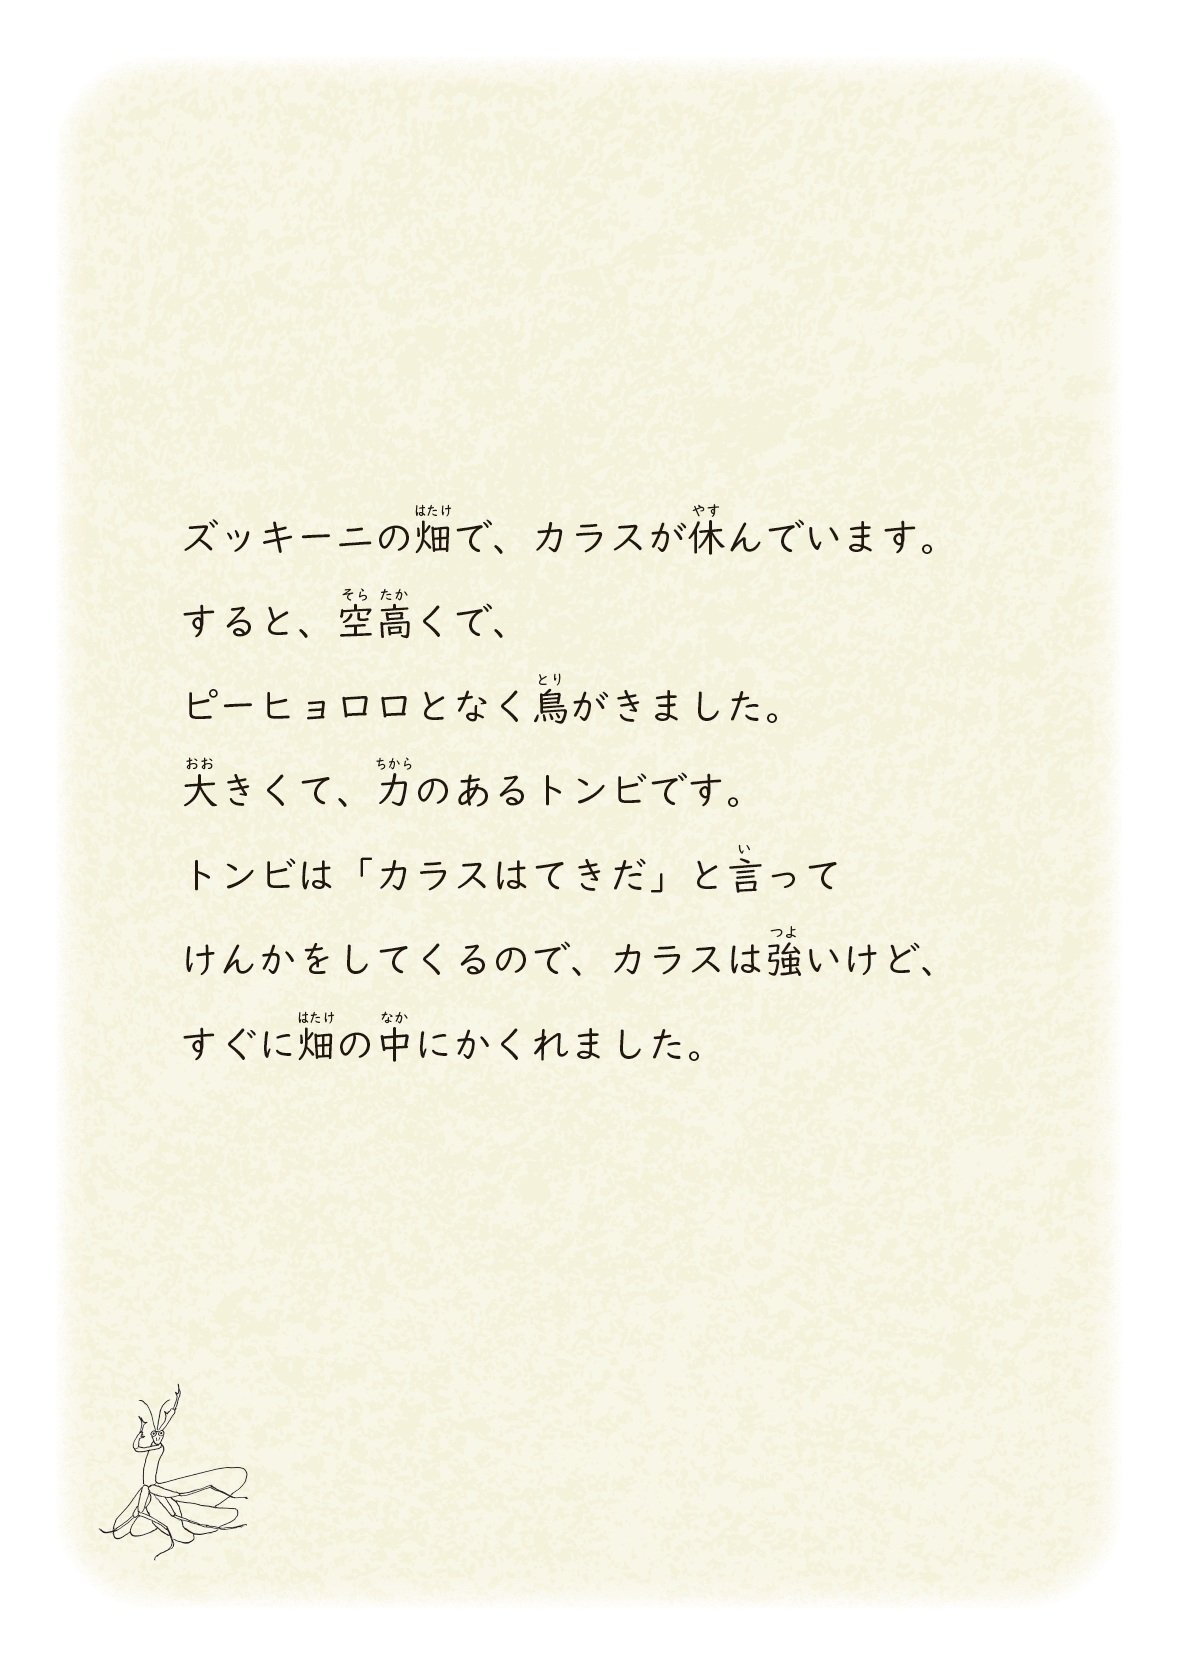 ズッキーニの畑で、カラスが休んでいます。
すると、空高くで、
ピーヒョロロとなく鳥がきました。
大きくて、力のあるトンビです。
トンビは「カラスはてきだ」と言って
けんかをしてくるので、カラスは強いけど、
すぐに畑の中にかくれました。